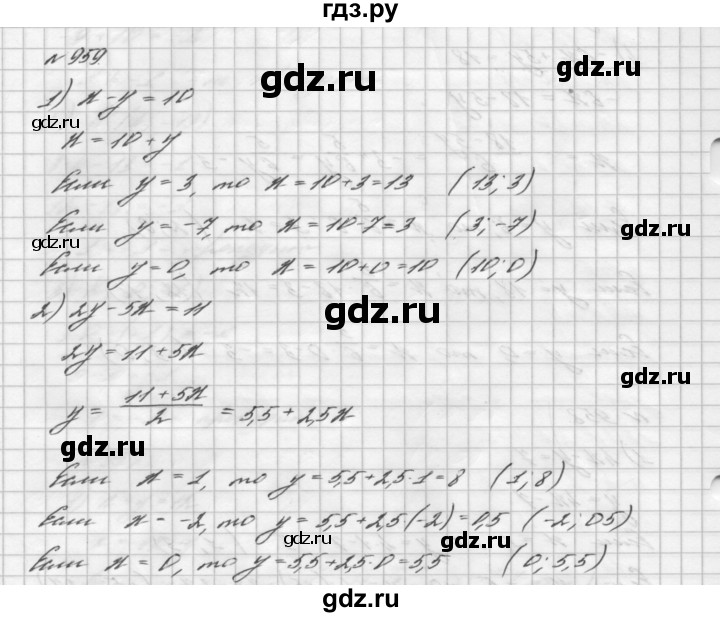 гдз.ру
№ 959.
gdz.ru
gdz.ru
1) x - y = 10
gdz.ru
x = 10 + y
Если y = 3, то x = 10 + 3 = 13 (13; 3)
Если y = -7, то x = 10 - 7 = 3 (3; -7)
gdz.ru
gdz.ru
Если y = 0, то x = 10 + 0 = 10 (10; 0)
2) 2y - 5x = 11
gdz.ru
2y = 11 + 5x
gdz.ru
y = (11 + 5x)/2 = 5,5 + 2,5x
gdz.ru
Если x = 1, то y = 5,5 + 2,5·1 = 8 (1; 8)
Если x = -2, то y = 5,5 + 2,5(-2) = 0,5 (-2; 0,5)
gdz.ru
gdz.ru
Если x = 0, то y = 5,5 + 2,5·0 = 5,5 (0; 5,5)
gdz.ru